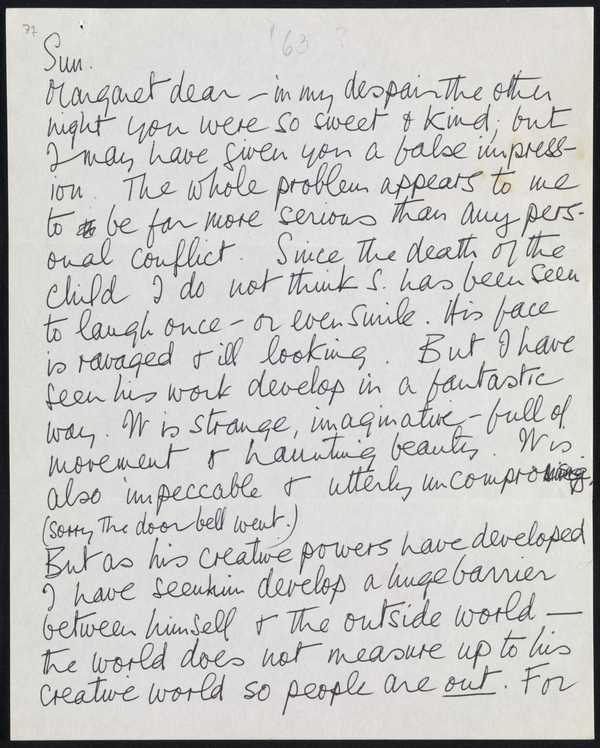 77
'63 ?
Sun.
Margaret dear – in my despair the other
night you were so sweet & kind; but
I may have given you a false impress-
ion. The whole problem appears to me
to be far more serious than any pers-
onal conflict. Since the death of the
child I do not think S. has been seen
to laugh once – or even smile. His face
is ravaged & ill looking. But I have
seen his work develop in a fantastic
way. It is strange, imaginative – full of
movement & haunting beauty. It is
also impeccable & utterly uncompromising.
(Sorry the door bell went.)
But as his creative powers have developed
I have seen him develop a huge barrier
between himself & the outside world —
the world does not measure up to his
creative world so people are out. For